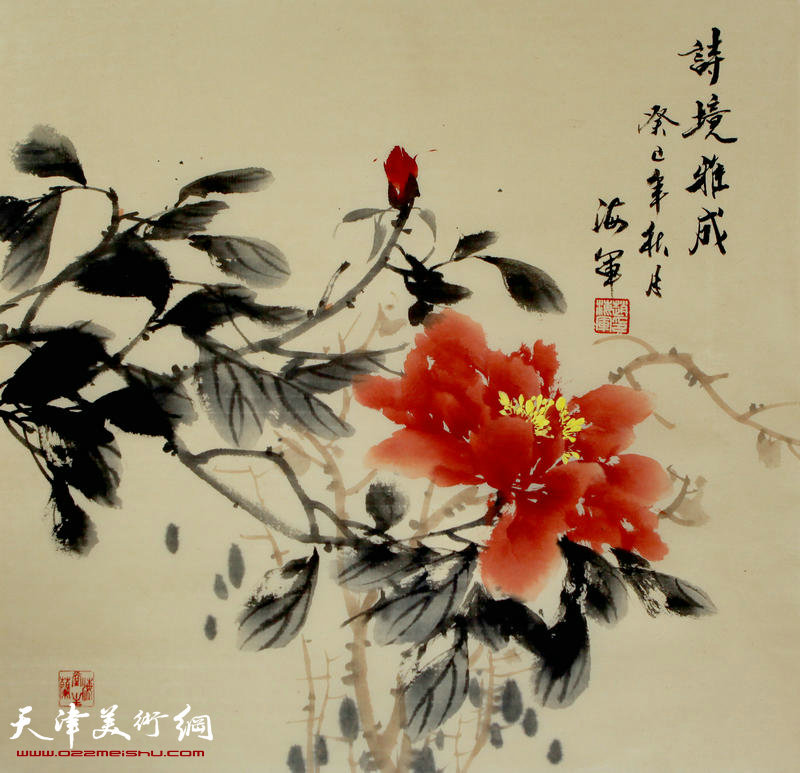 詩境雅成
癸巳年秋月
海軍
天津美術網
www.022meishu.com